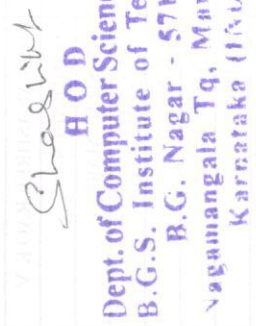 H O D
Dept. of Computer Scien
B.G.S. Institute of Te
B.G. Nagar - 571
Nagamangala Tq, Man
Karnataka (IN